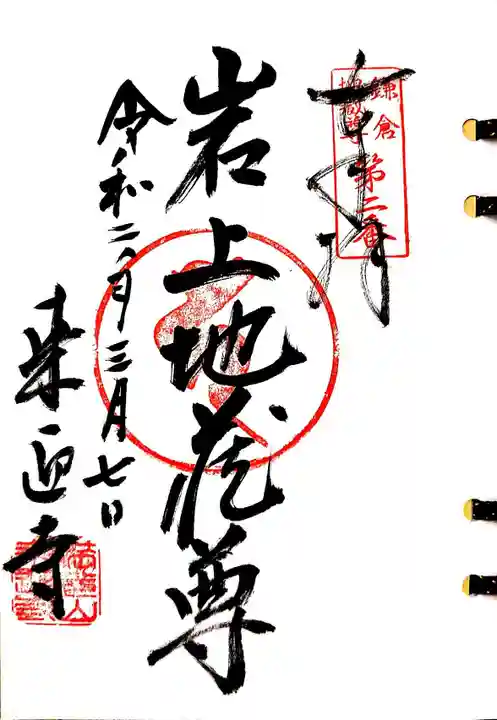 奉拝
鎌倉
地蔵尊
第二番
岩上地蔵尊
令和二年三月七日
来迎寺